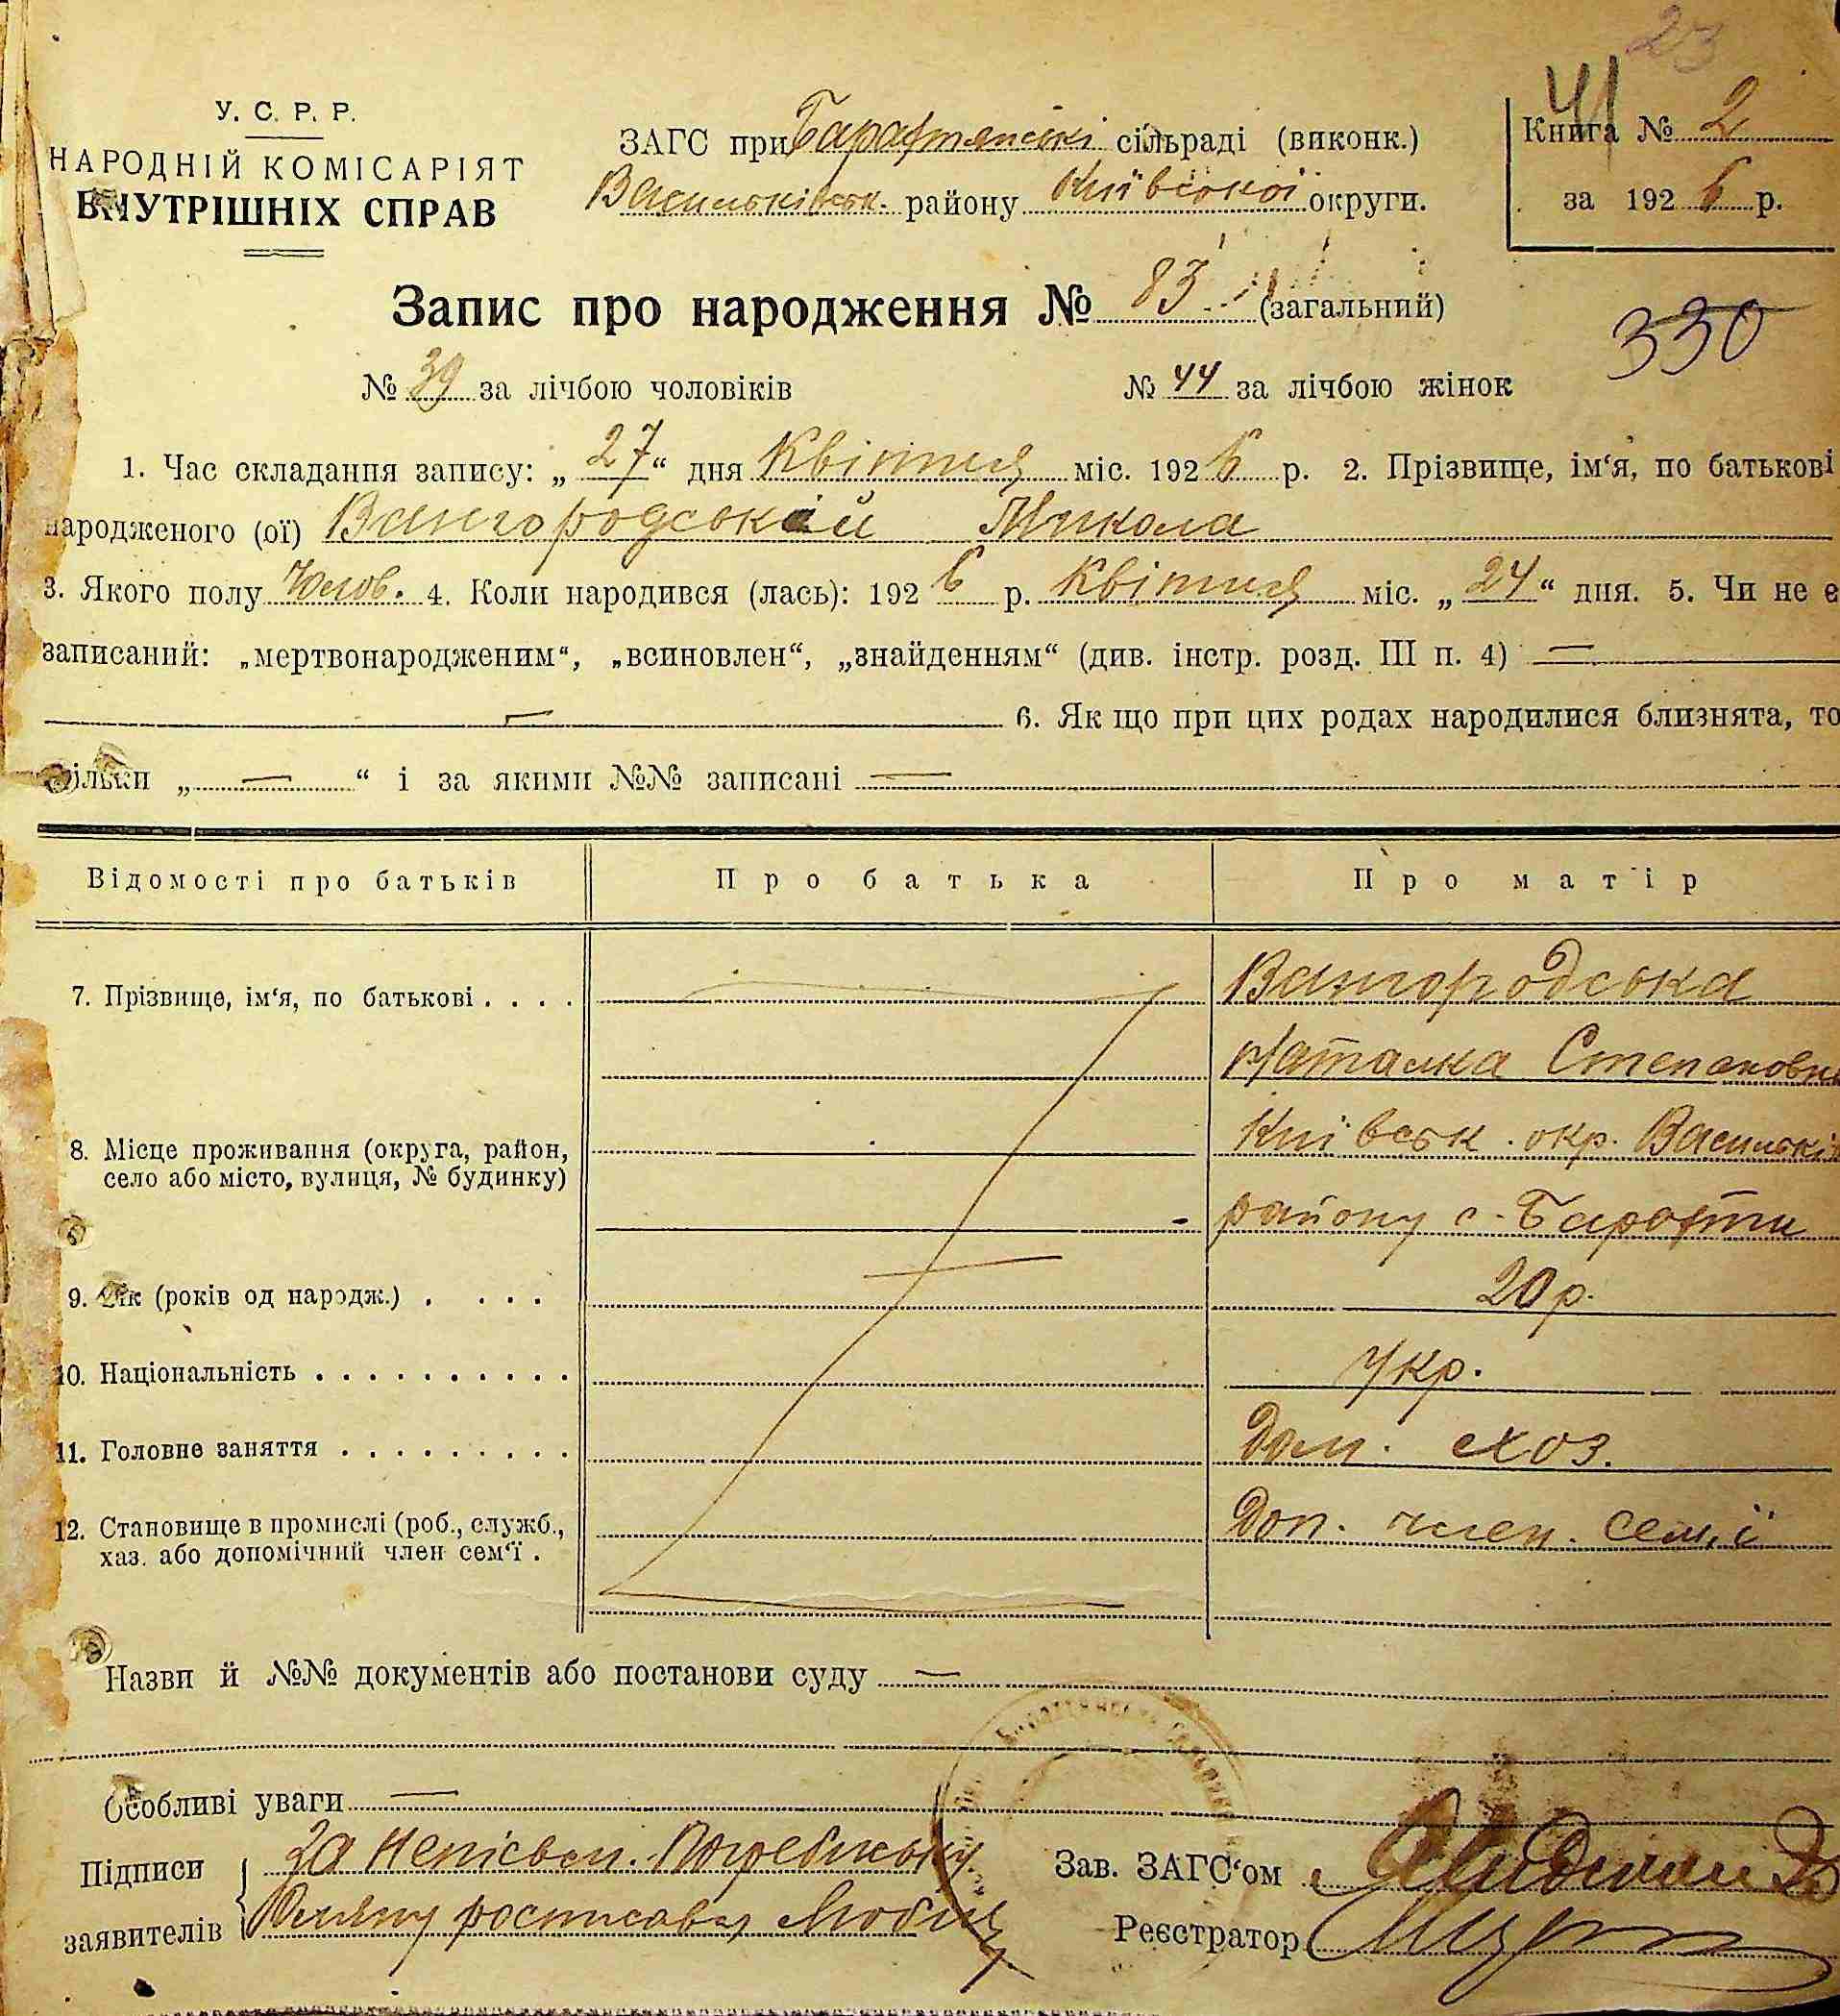 23
У. С. Р. Р.
НАРОДНІЙ КОМІСАРІЯТ
ВНУТРІШНІХ СПРАВ
ЗАГС при Барахтянські сільраді (виконк.)
Васильківськ. району Київської округи.
41
Книга № 2
за 1926 р.
Запис про народження № 83 (загальний)
330
№ 39 за лічбою чоловіків № 44 за лічбою жінок
1. Час складання запису: „27“ дня Квітня міс. 1926 р. 2. Прізвище, ім‘я, по батькові
народженого (ої) Вангородський Микола
3. Якого полу Чолов. 4. Коли народився (лась): 1926 р. Квітня міс. „24“ дня. 5. Чи не є
записаний: „мертвонародженим“, „всиновлен“, „знайденням“ (див. інстр. розд. III п. 4) —
— 6. Як що при цих родах народилися близнята, то
скільки „—“ і за якими №№ записані —
Відомості про батьків Про батька Про матір
7. Прізвище, ім‘я, по батькові . . . . Вангородська
Наталка Степановна
8. Місце проживання (округа, район, Київськ. окр. Васильків
село або місто, вулиця, № будинку) району с. Барахти
9. Вік (років од народж.) . . . . 20 р.
10. Національність . . . . . . . . . . Укр.
11. Головне заняття . . . . . . . . . Дом. схоз.
12. Становище в промислі (роб., служб., Доп. член. семˌї
хаз. або допомічний член сем‘ї .
Назви й №№ документів або постанови суду —
Особливі уваги —
Підписи За непісьм. Погребняк
заявителів росписався
Зав. ЗАГС‘ом
Реєстратор